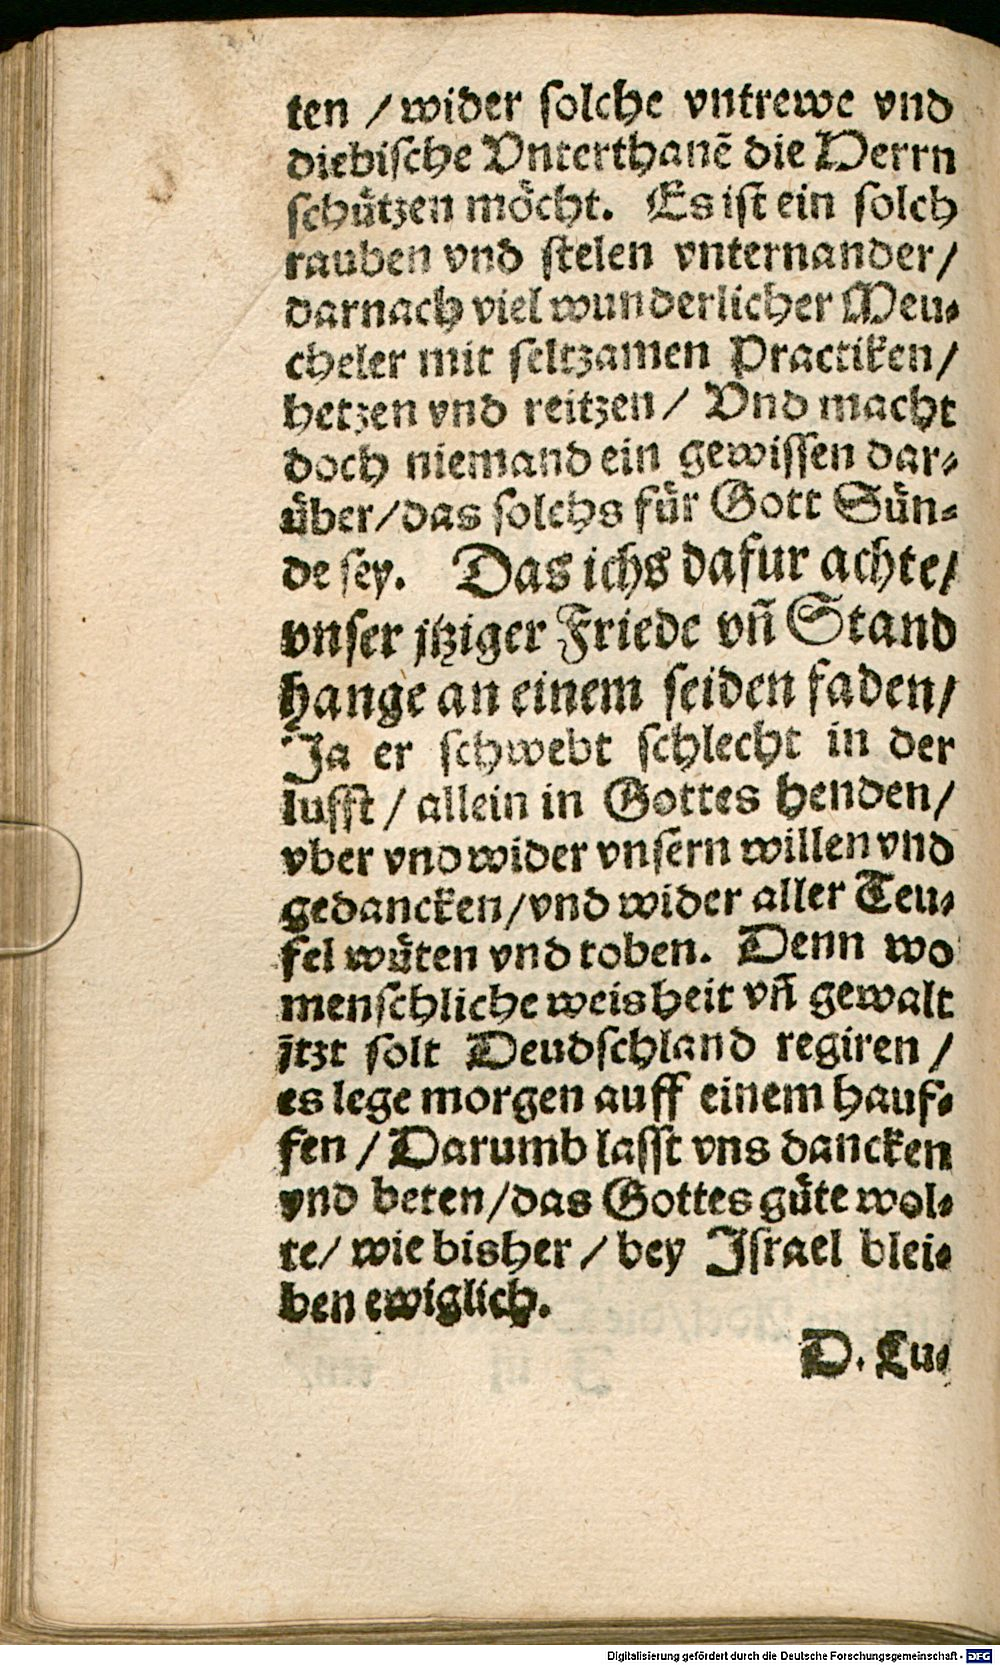 ten / wider solche vntrewe vnd
diebische Vnterthanē die Herrn
schützen möcht. Es ist ein solch
rauben vnd stelen vnternander/
darnach viel wunderlicher Meu⸗
cheler mit seltzamen Practiken/
hetzen vnd reitzen/ Vnd macht
doch niemand ein gewissen dar⸗
über/das solchs für Gott Sün⸗
de sey. Das ichs dafur achte/
vnser jtziger Friede vñ Stand
hange an einem seiden faden/
Ja er schwebt schlecht in der
lufft / allein in Gottes henden/
vber vnd wider vnsern willen vnd
gedancken/vnd wider aller Teu⸗
fel wüten vnd toben. Denn wo
menschliche weisheit vñ gewalt
jtzt solt Deudschland regiren /
es lege morgen auff einem hauf⸗
fen / Darumb lasst vns dancken
vnd beten/das Gottes güte wol⸗
te/ wie bisher / bey Israel blei⸗
ben ewiglich.
D. Lu⸗
Digitalisierung gefördert durch die Deutsche Forschungsgemeinschaft - DFG